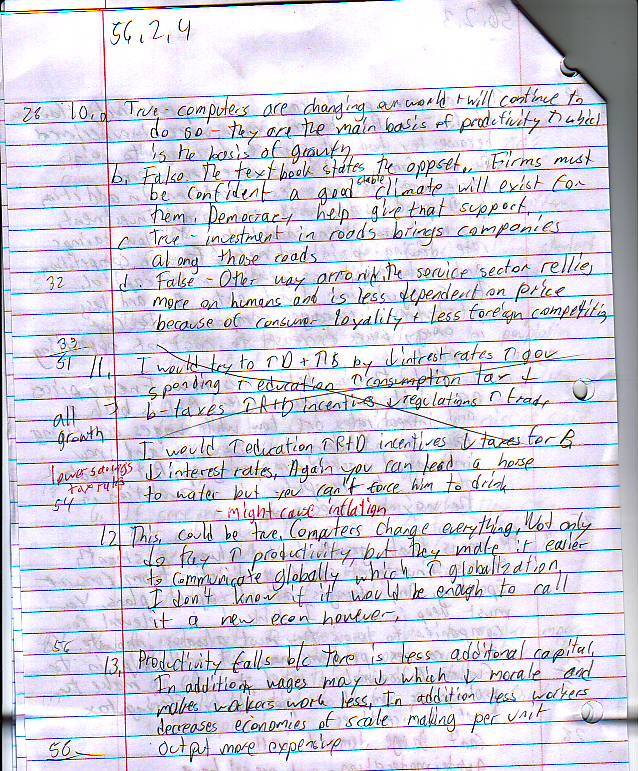 56, 2, 4
28 10. a True - computers are changing our world + will continue to
do so - they are the main basis of prodctivity ↑ which
is the basis of growth
b. False the textbook states the oppset,. Firms must
be confident a good stable climate will exist for
them. Democracy help give that support.
c True - investment in roads brings companies
along those roads
32 d. False - Other way arround, the service sector rellies
more on humans and is less dependent on price
because of consumer loyality + less foreign competition
33
51 11. I would try to ↑D + ↑B by ↓intrest rates ↑gov
spending ↑education ↑consumption tax ↓
b-taxes ↑R+D incentives ↓regulations ↑trade
all
growth
I would ↑education ↑R+D incentives ↓taxes for B
lower savings
tax rules
↓interest rates, Again you can lead a horse
54 to water but you can't force him to drink
- might cause inflation
12 This, could be true. Computers change everything, Not only
do they ↑ productivity, but they make it easier
to communicate globally which ↑ globalization
I don't know if it would be enough to call
it a new econ however.
56
13. Productivity falls b/c there is less additonal capital,
In addition, wages may ↓ which ↓ morale and
makes workers work less, In addition less workers
decreases economies of scale making per unit
56 output more expensive